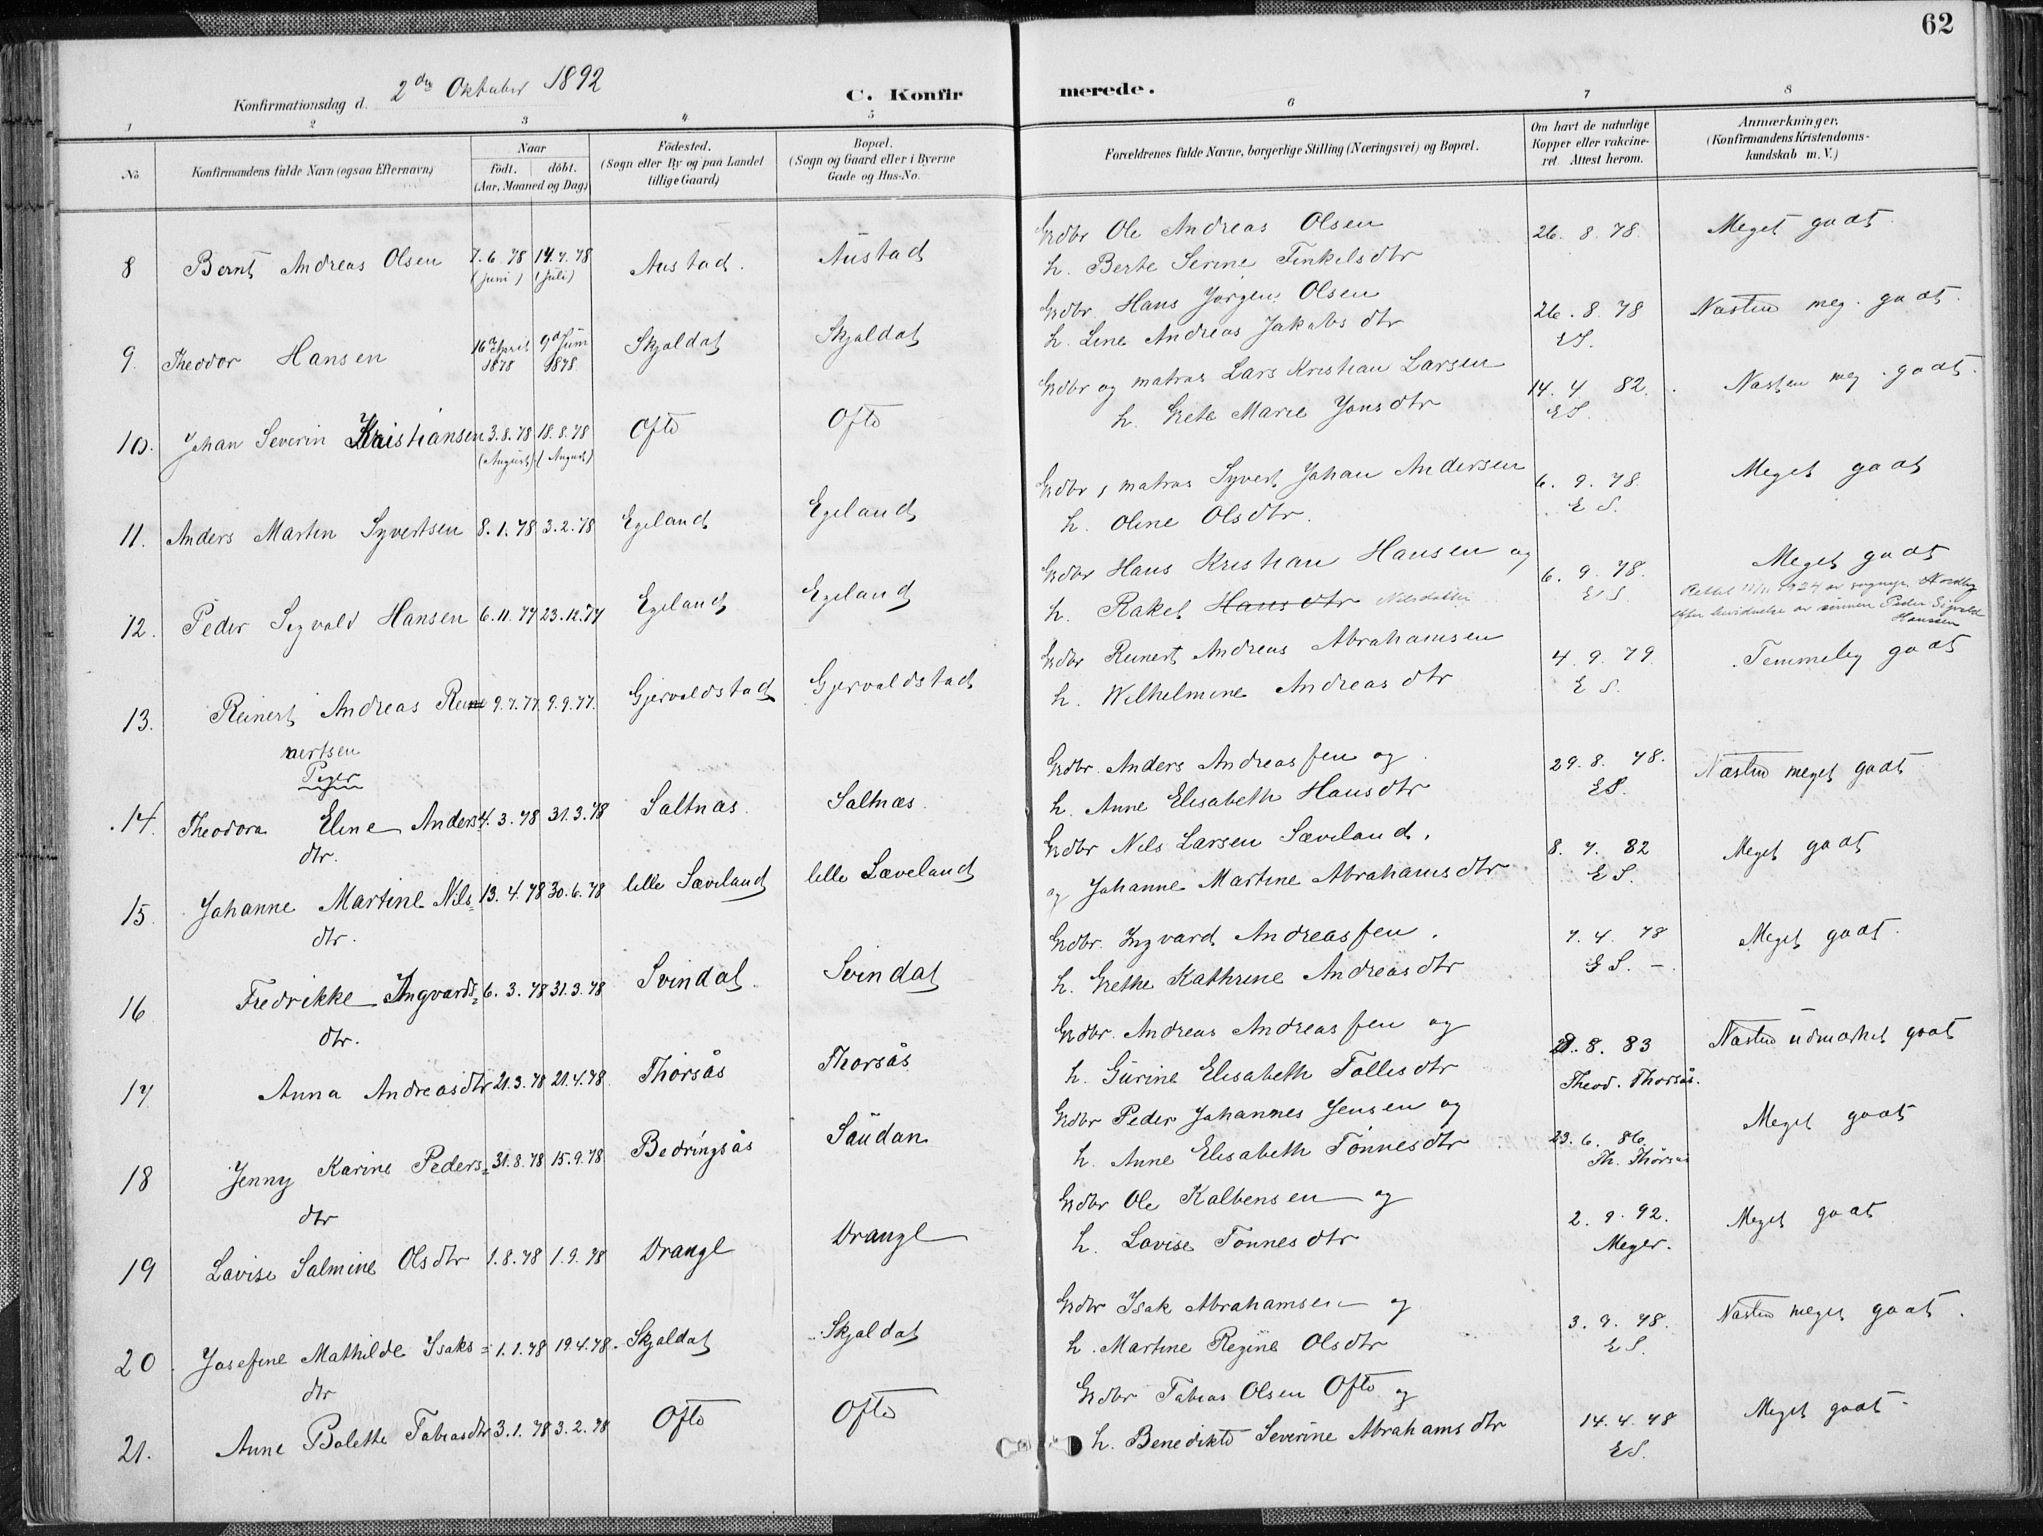 62
Konfirmationsdag d. 2den Oktober 1892
C. Konfirmerede.
1 2 3 4 5 6 7 8
No
Konfirmandens fulde Navn (ogsaa Efternavn)
Naar
födt. döbt.
(Aar, Maaned og Dag)
Födested.
(Sogn eller By og paa Landet
tillige Gaard)
Bopæl.
(Sogn og Gaard eller i Byerne
Gade og Hus-No.
Forældrenes fulde Navne, borgerlige Stilling (Næringsvei) og Bopæl.
Om havt de naturlige
Kopper eller vakcine-
ret. Attest herom.
Anmærkninger.
(Konfirmandens Kristendoms-
kundskab m. V.)
8 Bernt Andreas Olsen 7.6.78 14.7.78 Austad. Austad Gdbr Ole Andreas Olsen 26.8.78. Meget godt
(juni) (juli) h. Berte Serine Tinkelsdtr
9. Theodor Hansen 16de April 9de Juni Skjoldal Skjoldal Gdbr. Hans Jørgen Olsen 26.8.78 Næsten meg. godt.
1878 1878. h. Line Andrea Jakobsdtr ES.
10. Johan Severin Kristiansen 3.8.78 18.8.78 Ofte Ofte Gdbr og matros Lars Kristian Larsen 14.4.82. Næsten meg. godt.
(August) (August) h. Grete Marie Jonsdtr ES.
11. Anders Martin Syvertsen 8.1.78 3.2.78 Egeland Egeland Gdbr, matros Syvert Johan Andersen 6.9.78. Meget godt
h. Oline Olsdtr. ES.
12. Peder Sigvald Hansen 6.11.77 23.12.77 Egeland Egeland Gdbr Hans Kristian Hansen og 6.9.78. Meget godt
h. Rakel Hansdtr Nilsdatter ES
1924 av sognepr. Nordby
efter av sønnen Peder Sigvald
Hanssen
13. Reinert Andreas Rei 9.7.77 9.9.77. Gjervoldstad Gjervoldstad Gdbr Reinert Andreas Abrahamsen 4.9.79. Temmelig godt
nertsen h. Wilhelmine Andreasdtr ES.
Piger
14. Theodora Eline Anders 4.3.78 31.3.78 Saltnæs. Saltnæs. Gdbr. Anders Andreassen og 29.8.78. Næsten meget godt
dtr. h. Anne Elisabeth Hansdtr ES.
15. Johanne Martine Nils= 13.4.78 30.6.78 lille Sæveland lille Sæveland Gdbr Nils Larsen Sæveland, 8.7.82 Meget godt
dtr. og Johanne Martine Abrahamsdtr ES.
16 Fredrikke Ingvards= 6.3.78 31.3.78 Svindal. Svindal Gdbr. Ingvard Andreassen. 7.4.78 Meget godt.
dtr. h. Grethe Kathrine Andreasdtr ES.–
17 Anna Andreasdtr 21.3.78 21.4.78 Thorsås Thorsås Gdbr. Andreas Andreassen og 8.83 Næsten udmærket godt
h. Gurine Elisabeth Tollesdtr Theod. Thorsås.
18 Jenny Karine Peders= 31.8.78 15.9.78 Bedringsås Saudan Gdbr Peder Johannes Jensen og 23.6.86. Meget godt
dtr h. Anne Elisabeth Tönnesdtr Th. Thorsås
19 Lovise Salmine Olsdtr 1.8.78 1.9.78 Vrangl Vrangl Gdbr Ole Kalbensen og 2.9.92. Meget godt
h. Lovise Tönnesdtr Meyer.
20. Josefine Mathilde Isaks= 1.1.78 19.4.78. Skjoldal Skjoldal Gdbr Isak Abrahamsen og 3.9.78. Næsten meget godt.
dtr h. Martine Regine Olsdtr ES.
21. Anne Bolette Tobiasdtr 3.1.78 3.2.78 Ofte Ofte Gdbr Tobias Olsen Ofte og 14.4.78 Meget godt
h. Benedikte Severine Abrahamsdtr ES.